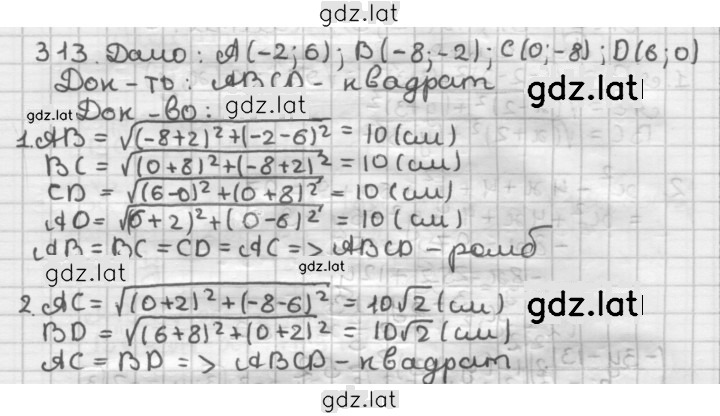 gdz.lat
313. Дано: A(-2; 6); B(-8; -2); C(0; -8); D(6; 0)
Док-ть: ABCD - квадрат gdz.lat
gdz.lat Док-во: gdz.lat
1. AB = √((-8+2)²+(-2-6)²) = 10 (см)
BC = √((0+8)²+(-8+2)²) = 10 (см)
CD = √((6-0)²+(0+8)²) = 10 (см)
AD = √(6+2)²+(0-6)² = 10 (см)
AB = BC = CD = AC => ABCD - ромб
gdz.lat gdz.lat gdz.lat
2. AC = √((0+2)²+(-8-6)²) = 10√2 (см)
BD = √((6+8)²+(0+2)²) = 10√2 (см)
AC = BD => ABCD - квадрат
gdz.lat